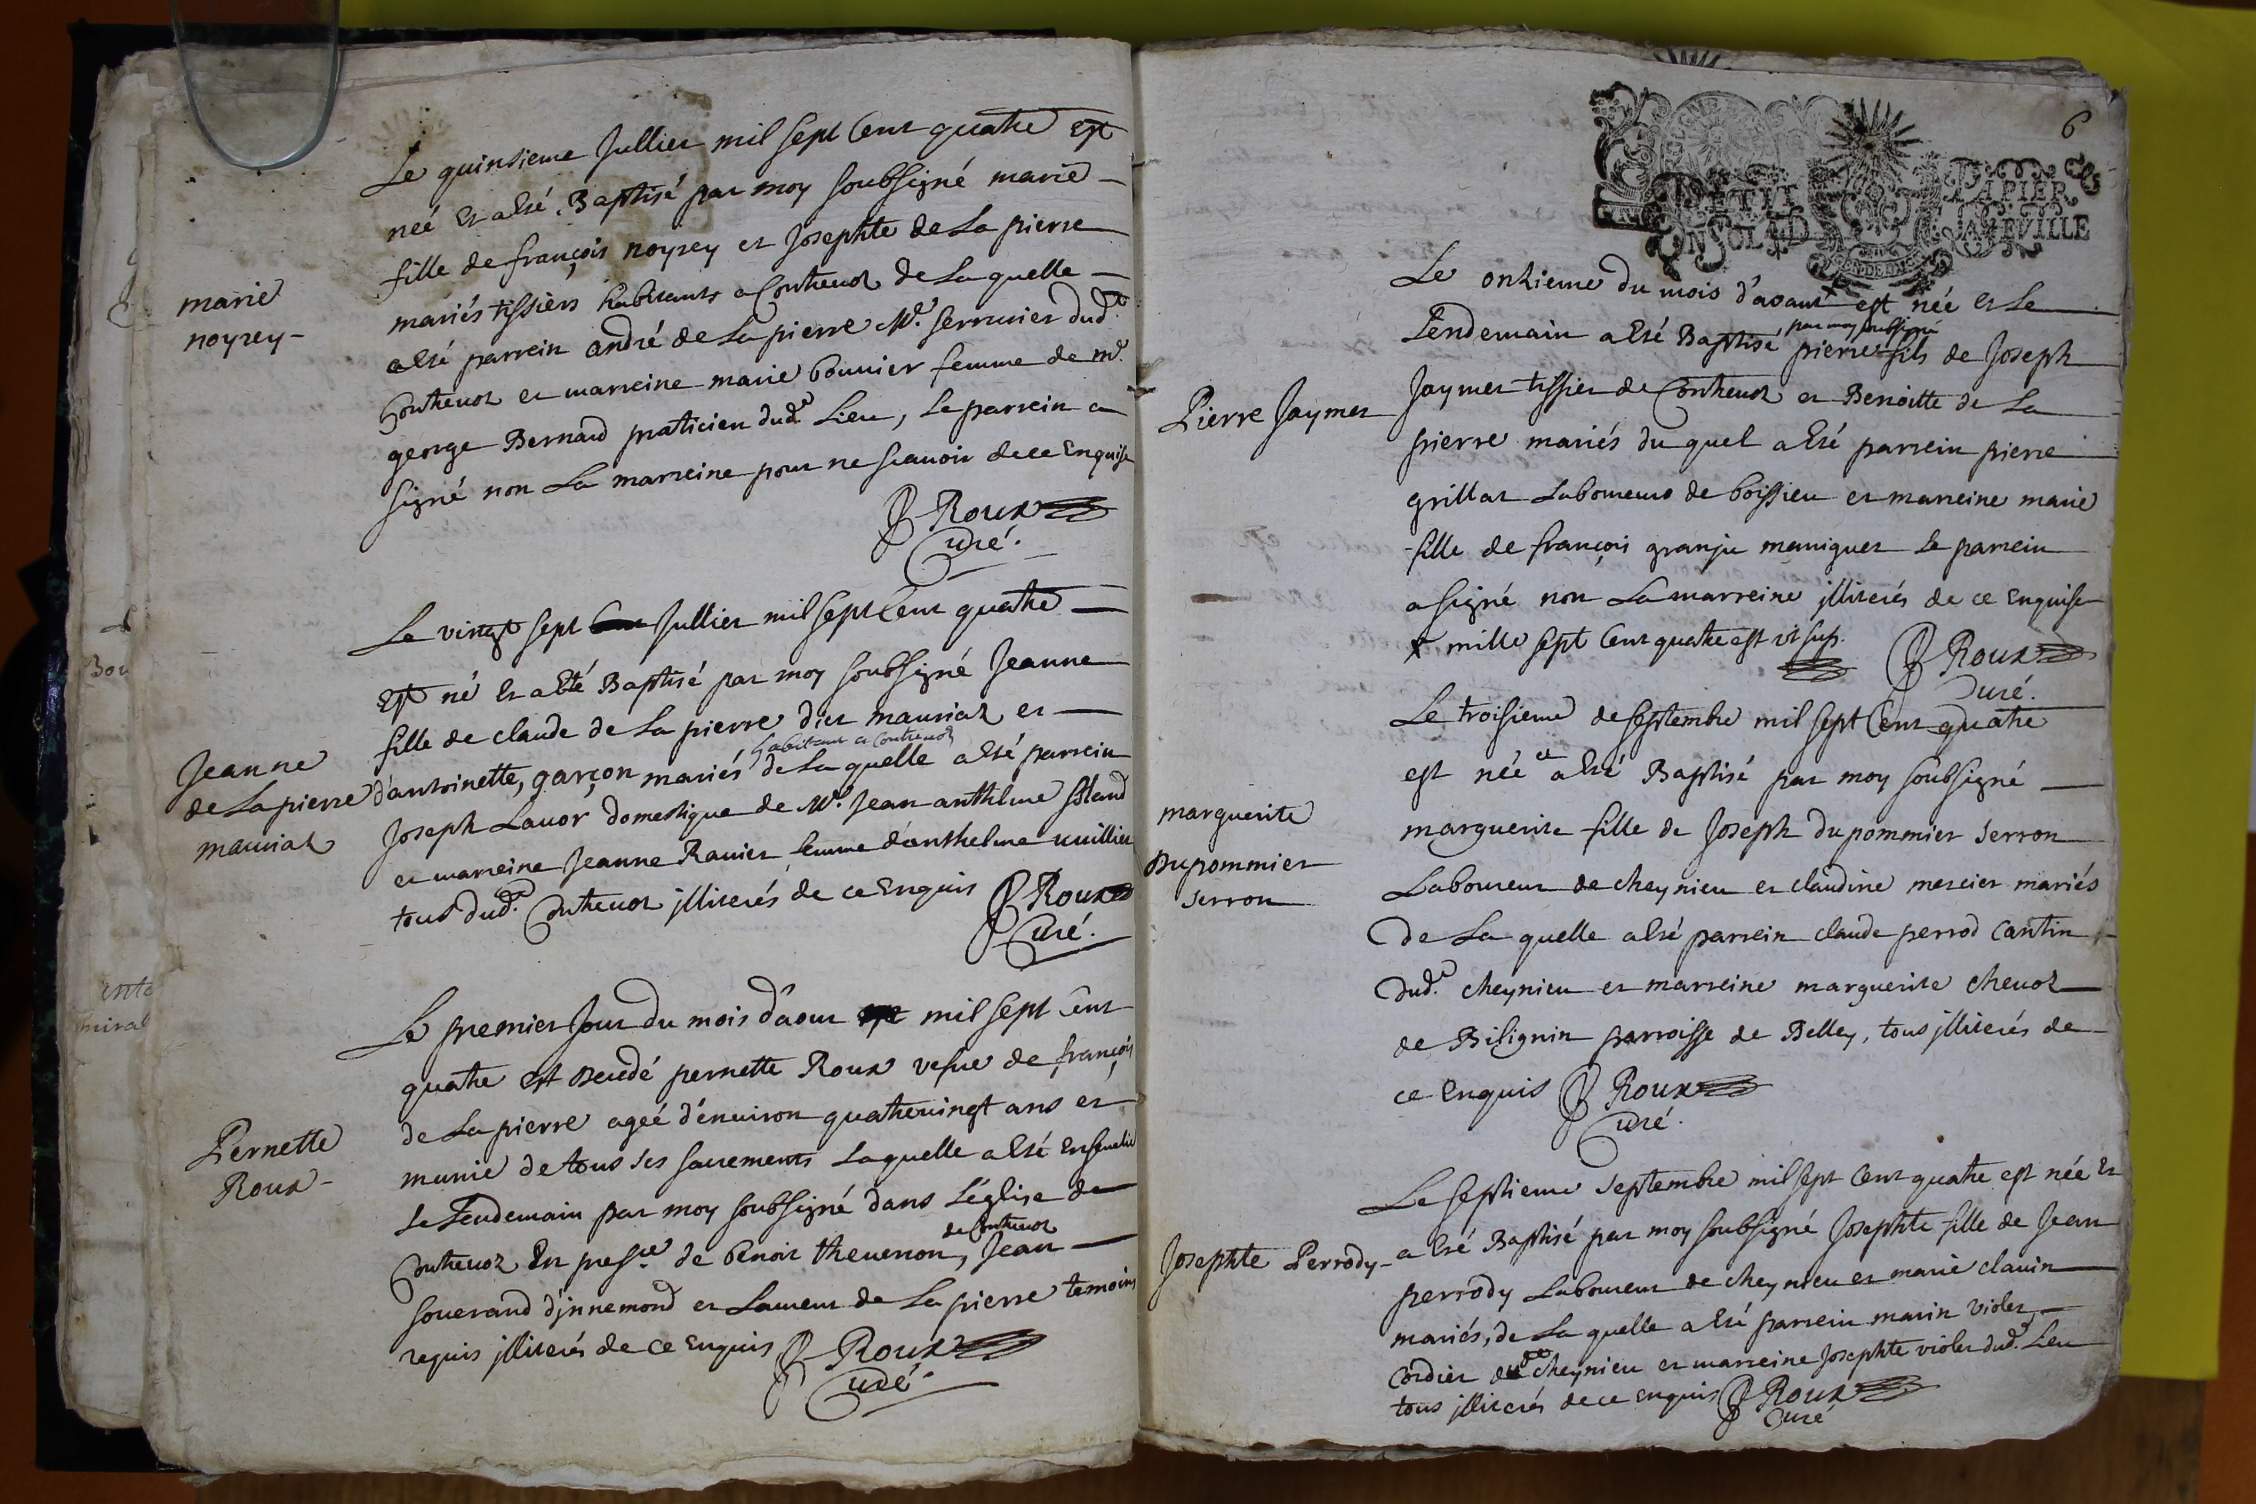 Le quinsieme Jullier mil sept Cent quatre est
née et a esté Baptisé par moy soubsigné marie
fille de françois noyrey et Josephte de La pierre
mariés tissiers habitants a Conthevoz de Laquelle
a esté parrein andré de La pierre Me. serrurier dudt.
Conthevoz et marreine marie bonnier femme de mr.
george Bernard praticien dudt. Lieu, Le parrein a
signé non La marreine pour ne scavoir de ce Enquise
marie
noyrey
Roux
Curé.
Le vingt sept Jullier mil sept Cent quatre
Est né et a Eté Baptisé par moy soubsigné Jeanne
fille de claude de La pierre dict mauriaz et
habitant a Contrevoz
d'antoinette, garçon mariés de La quelle a esté parrein
Joseph Lavor domestique de Mr. Jean anthelme
et marreine Jeanne Ravier femme d'anthelme vuillier
tous dudt. Conthevoz illiterés de ce Enquis Roux
Curé.
Jeanne
de La pierre
mauriaz
Le premier Jour du mois d'aout mil sept Cent
quatre est decedé pernette Roux vefve de françois
de La pierre ageé d'environ quatrevingt ans et
munie de tous ses sacrements Laquelle a Esté Ensevelie
Le Lendemain par moy soubsigné dans L'église de
de Contrevoz
Conthevoz En presce. de benoit thevenon, Jean
souverand d'jnnemond et Laurent de La pierre temoins
requis jlliterés de ce Enquis Roux
Curé.
Pernette
Roux
6
PETIT PAPIER
LA FEVILLE
Le onzieme du mois d'aoust est née et Le
par moy soubsigné
Lendemain a Esté Baptisé pierre fils de Joseph
Jaymet tissier de Conthevoz et Benoitte de La
pierre mariés du quel a Esté parrein pierre
grillat Laboureur de boissieu et marreine marie
fille de françois granju meniguet Le parrein
a signé non La marreine jlliterés de ce Enquise
x mille sept Cent quatre est vt sup. Roux
Curé.
Pierre Jaymet
Le troisieme de septembre mil sept Cent quatre
est née et a Esté Baptisé par moy soubsigné
marguerite fille de Joseph Dupommier serron
Laboureur de cheynieu et claudine mercier mariés
de La quelle a Esté parrein claude perrod Cantin
dudt. cheynieu et marreine marguerite chevoz
de Bilignin parroisse de Belley, tous jlliterés de
ce Enquis Roux
Curé.
marguerite
Dupommier
serron
Le septieme septembre mil sept Cent quatre est née et
a Esté Baptisé par moy soubsigné Josephte fille de Jean
perrody Laboureur de cheynieu et marie clavin
mariés, de La quelle a Esté parrein marin violet,
Cordier de cheynieu et marreine Josephte violet dudt. Lieu
tous jlliterés de ce Enquis Roux
Curé
Josephte Perrody